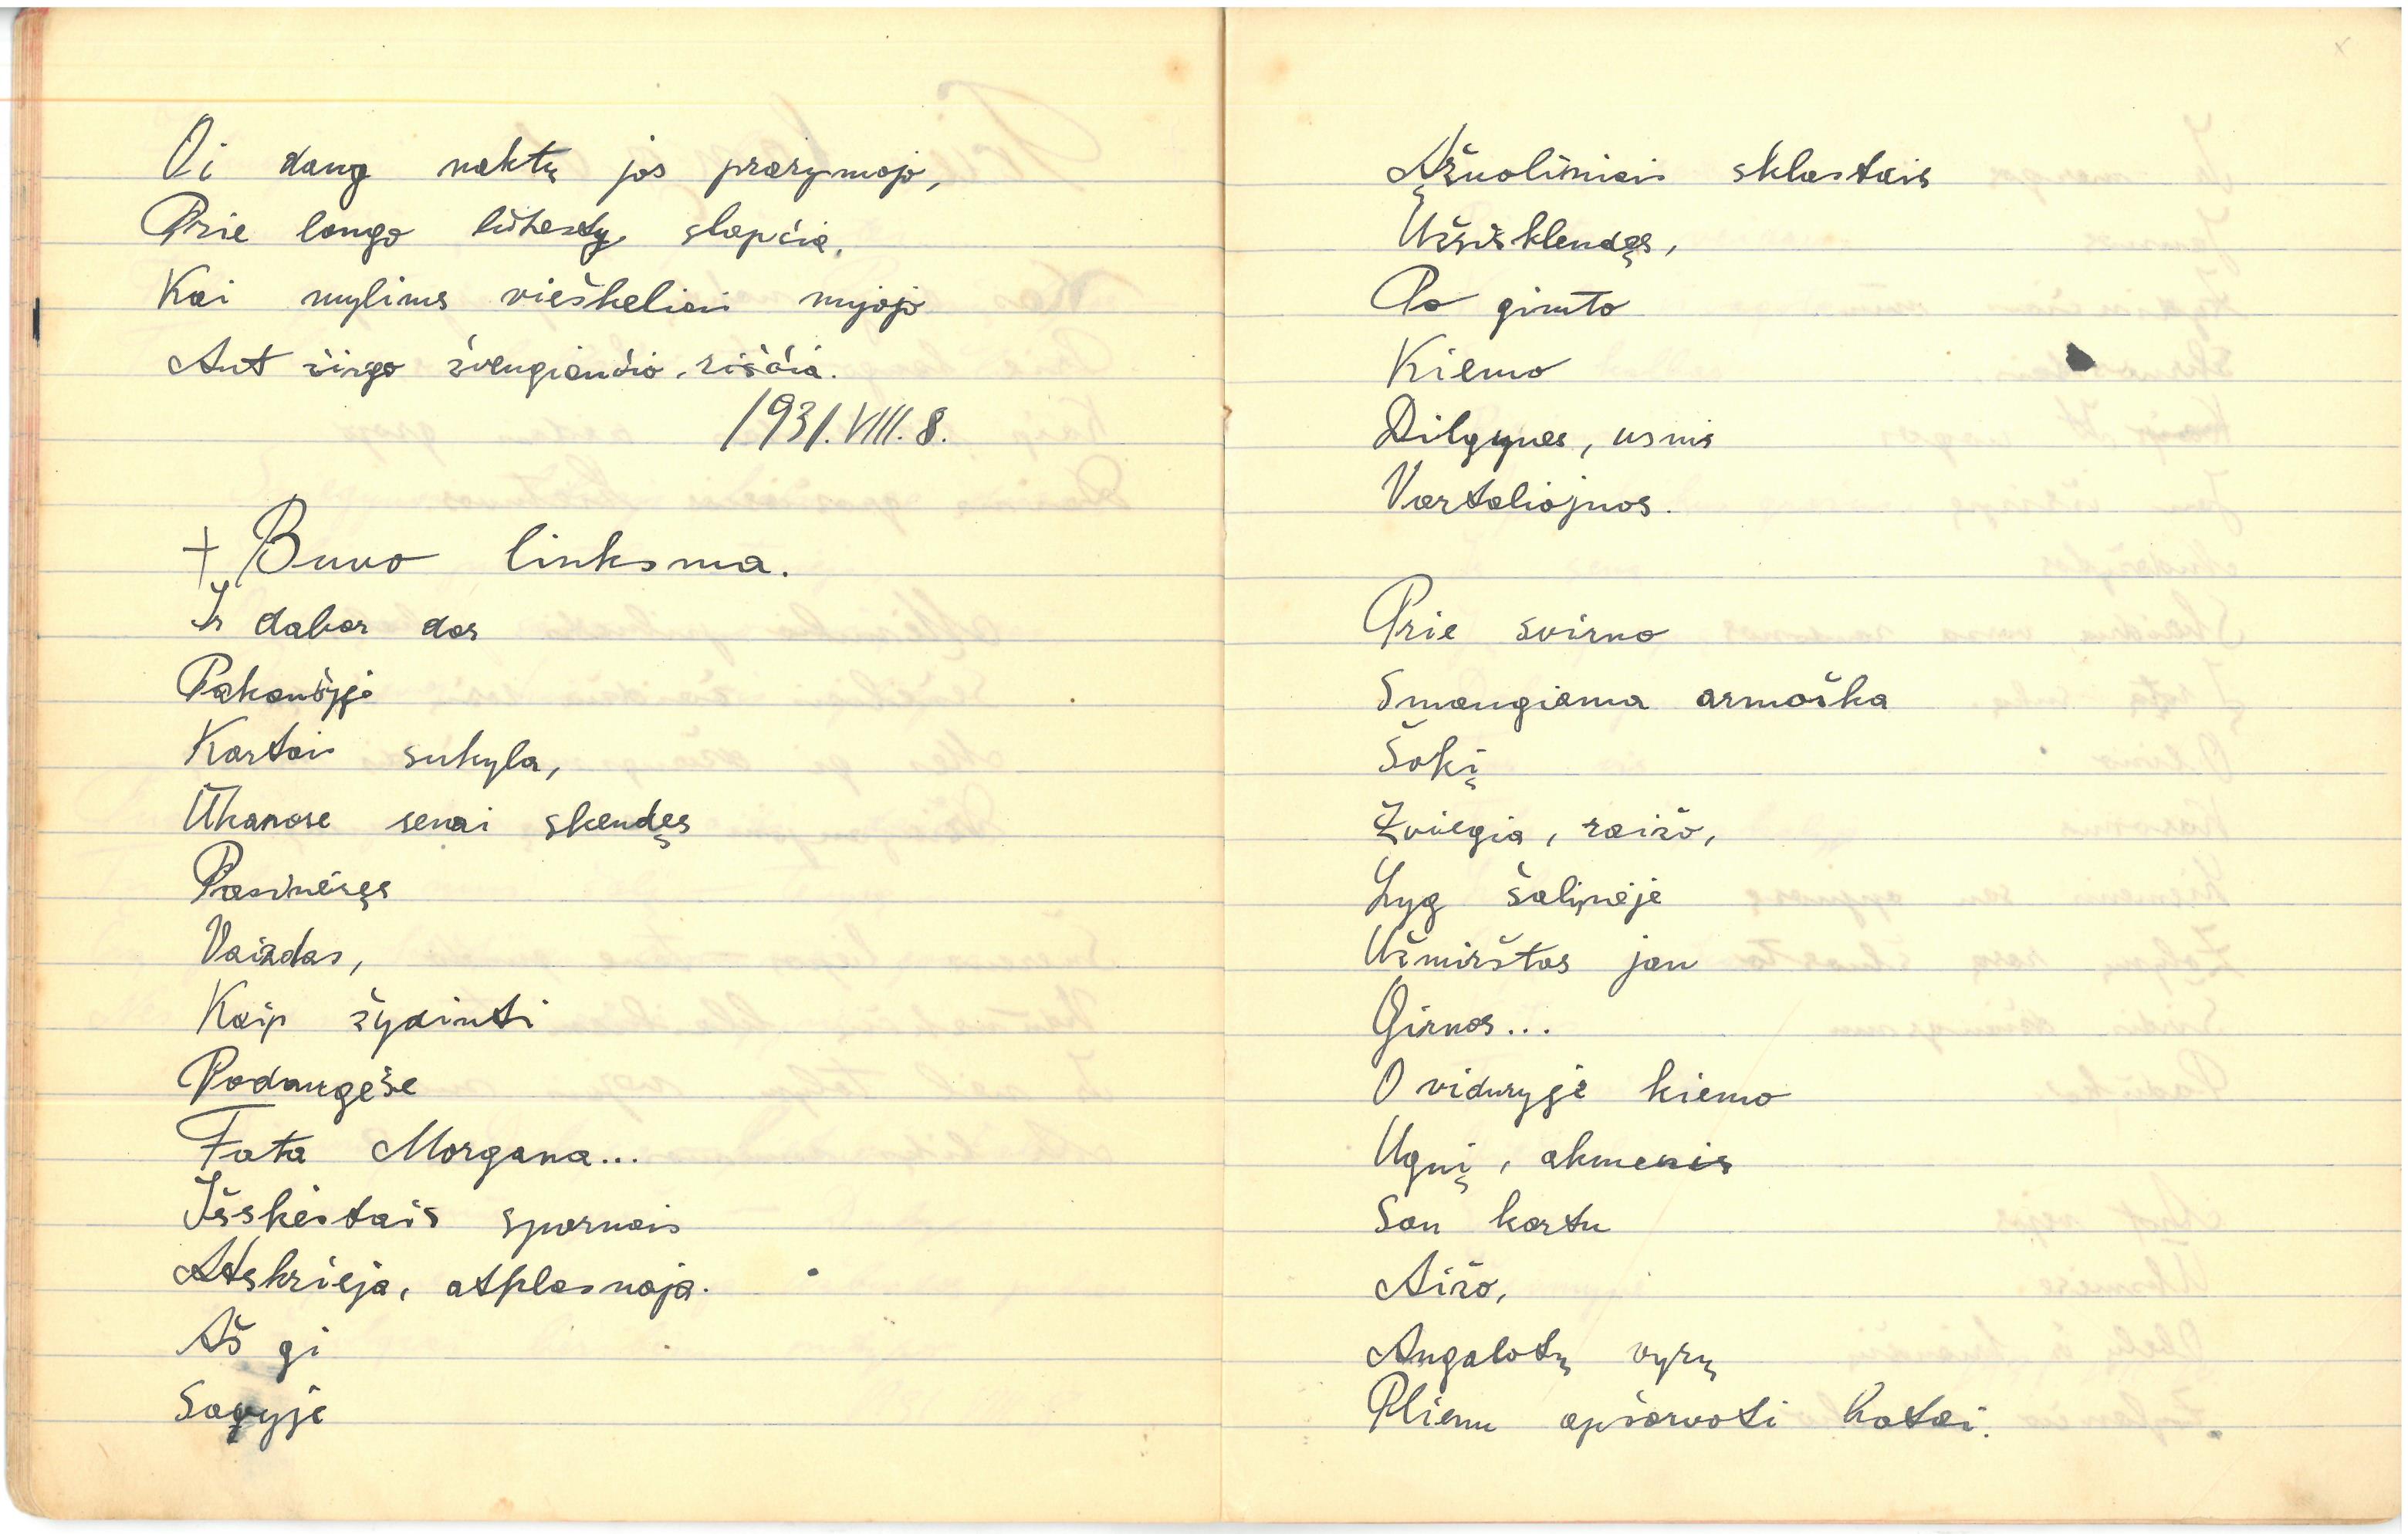 Oi daug naktų jos prarymojo,
Prie lango lūkesty slapčia,
Kai mylims vieškeliais mujojo
Ant žirgo žvengiančio risčia.
1931.VIII.8.
+ Buvo linksma.
Ir dabar dar
Pakaušyje
Kartais sukyla,
Ūkanose senai skendęs
Pasinėręs
Vaizdas,
Kaip žydinti
Padangėse
Fata Morgana...
Išskėstais sparnais
Atskrieja, atplasnoja.
Aš gi
Savyje
Ąžuoliniais sklastais
Užsisklendęs,
Po gimto
Kiemo
Dilgynes, usnis
Vartaliojuos.
Prie svirno
Smaugiama armoška
Šokį
Žviegia, raižo,
Lyg šalinėje
Užmirštos jau
Girnos...
O viduryje kiemo
Ugnį, akmenis
Sau kartu
Aižo,
Augalotų vyrų
Plienu apšarvoti batai.